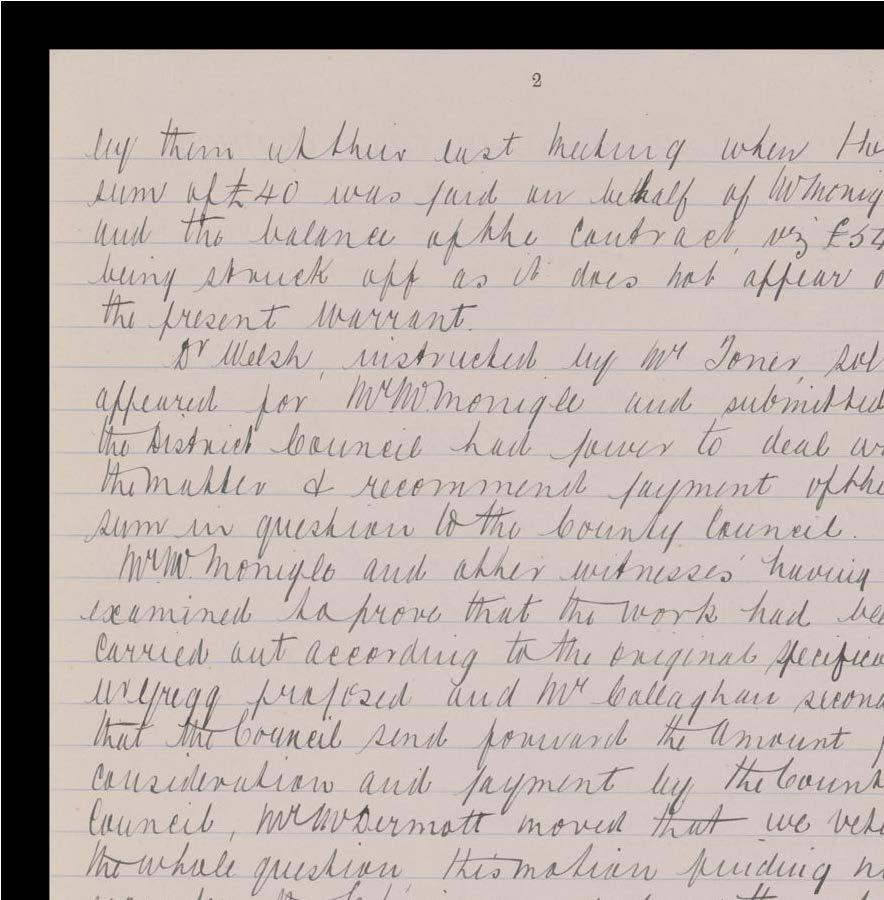 2
by them at their last meeting when the
sum of £40 was paid on behalf of McMonig
and the balance of the contract, viz £54
being struck off as it does not appear
the present warrant.
Dr Welsh, instructed by Mr Toner, sol
appeared for Mr McMonigle and submitted
the District Council had power to deal
the matter & recommend payment of the
sum in question to the County Council.
Mr McMonigle and other witnesses having
examined to prove that the work had bee
carried out according to the original specifica
Mr Gregg proposed and Mr Callaghan second
that the Council send forward the amount
consideration and payment by the Count
Council, Mr McDermott moved that we
the whole question, this motion finding